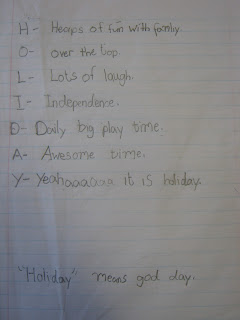 H- Heaps of fun with family.
O- over the top.
L- Lots of laugh.
I- Independence.
D- Daily big play time.
A- Awesome time.
Y- Yeahaaaaaa it is holiday.
"Holiday" means god day.